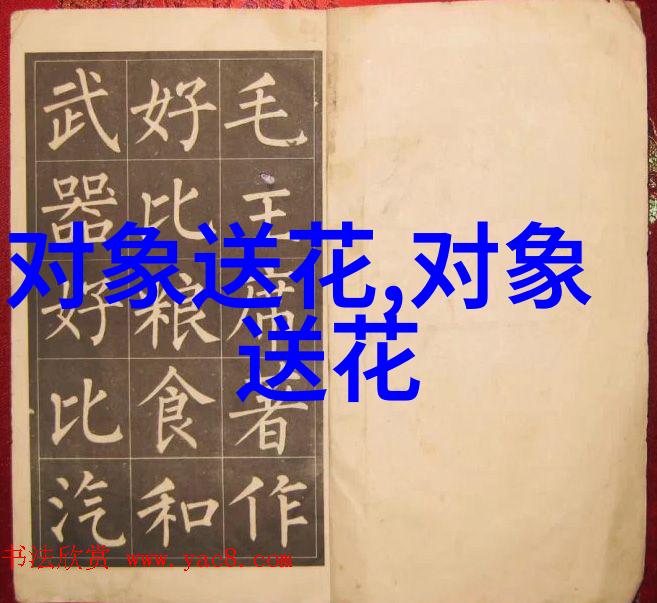 毛主席著作
好比粮食和
武器好比汽
对象送花,对象
送花
书法欣赏 www.yac8.com